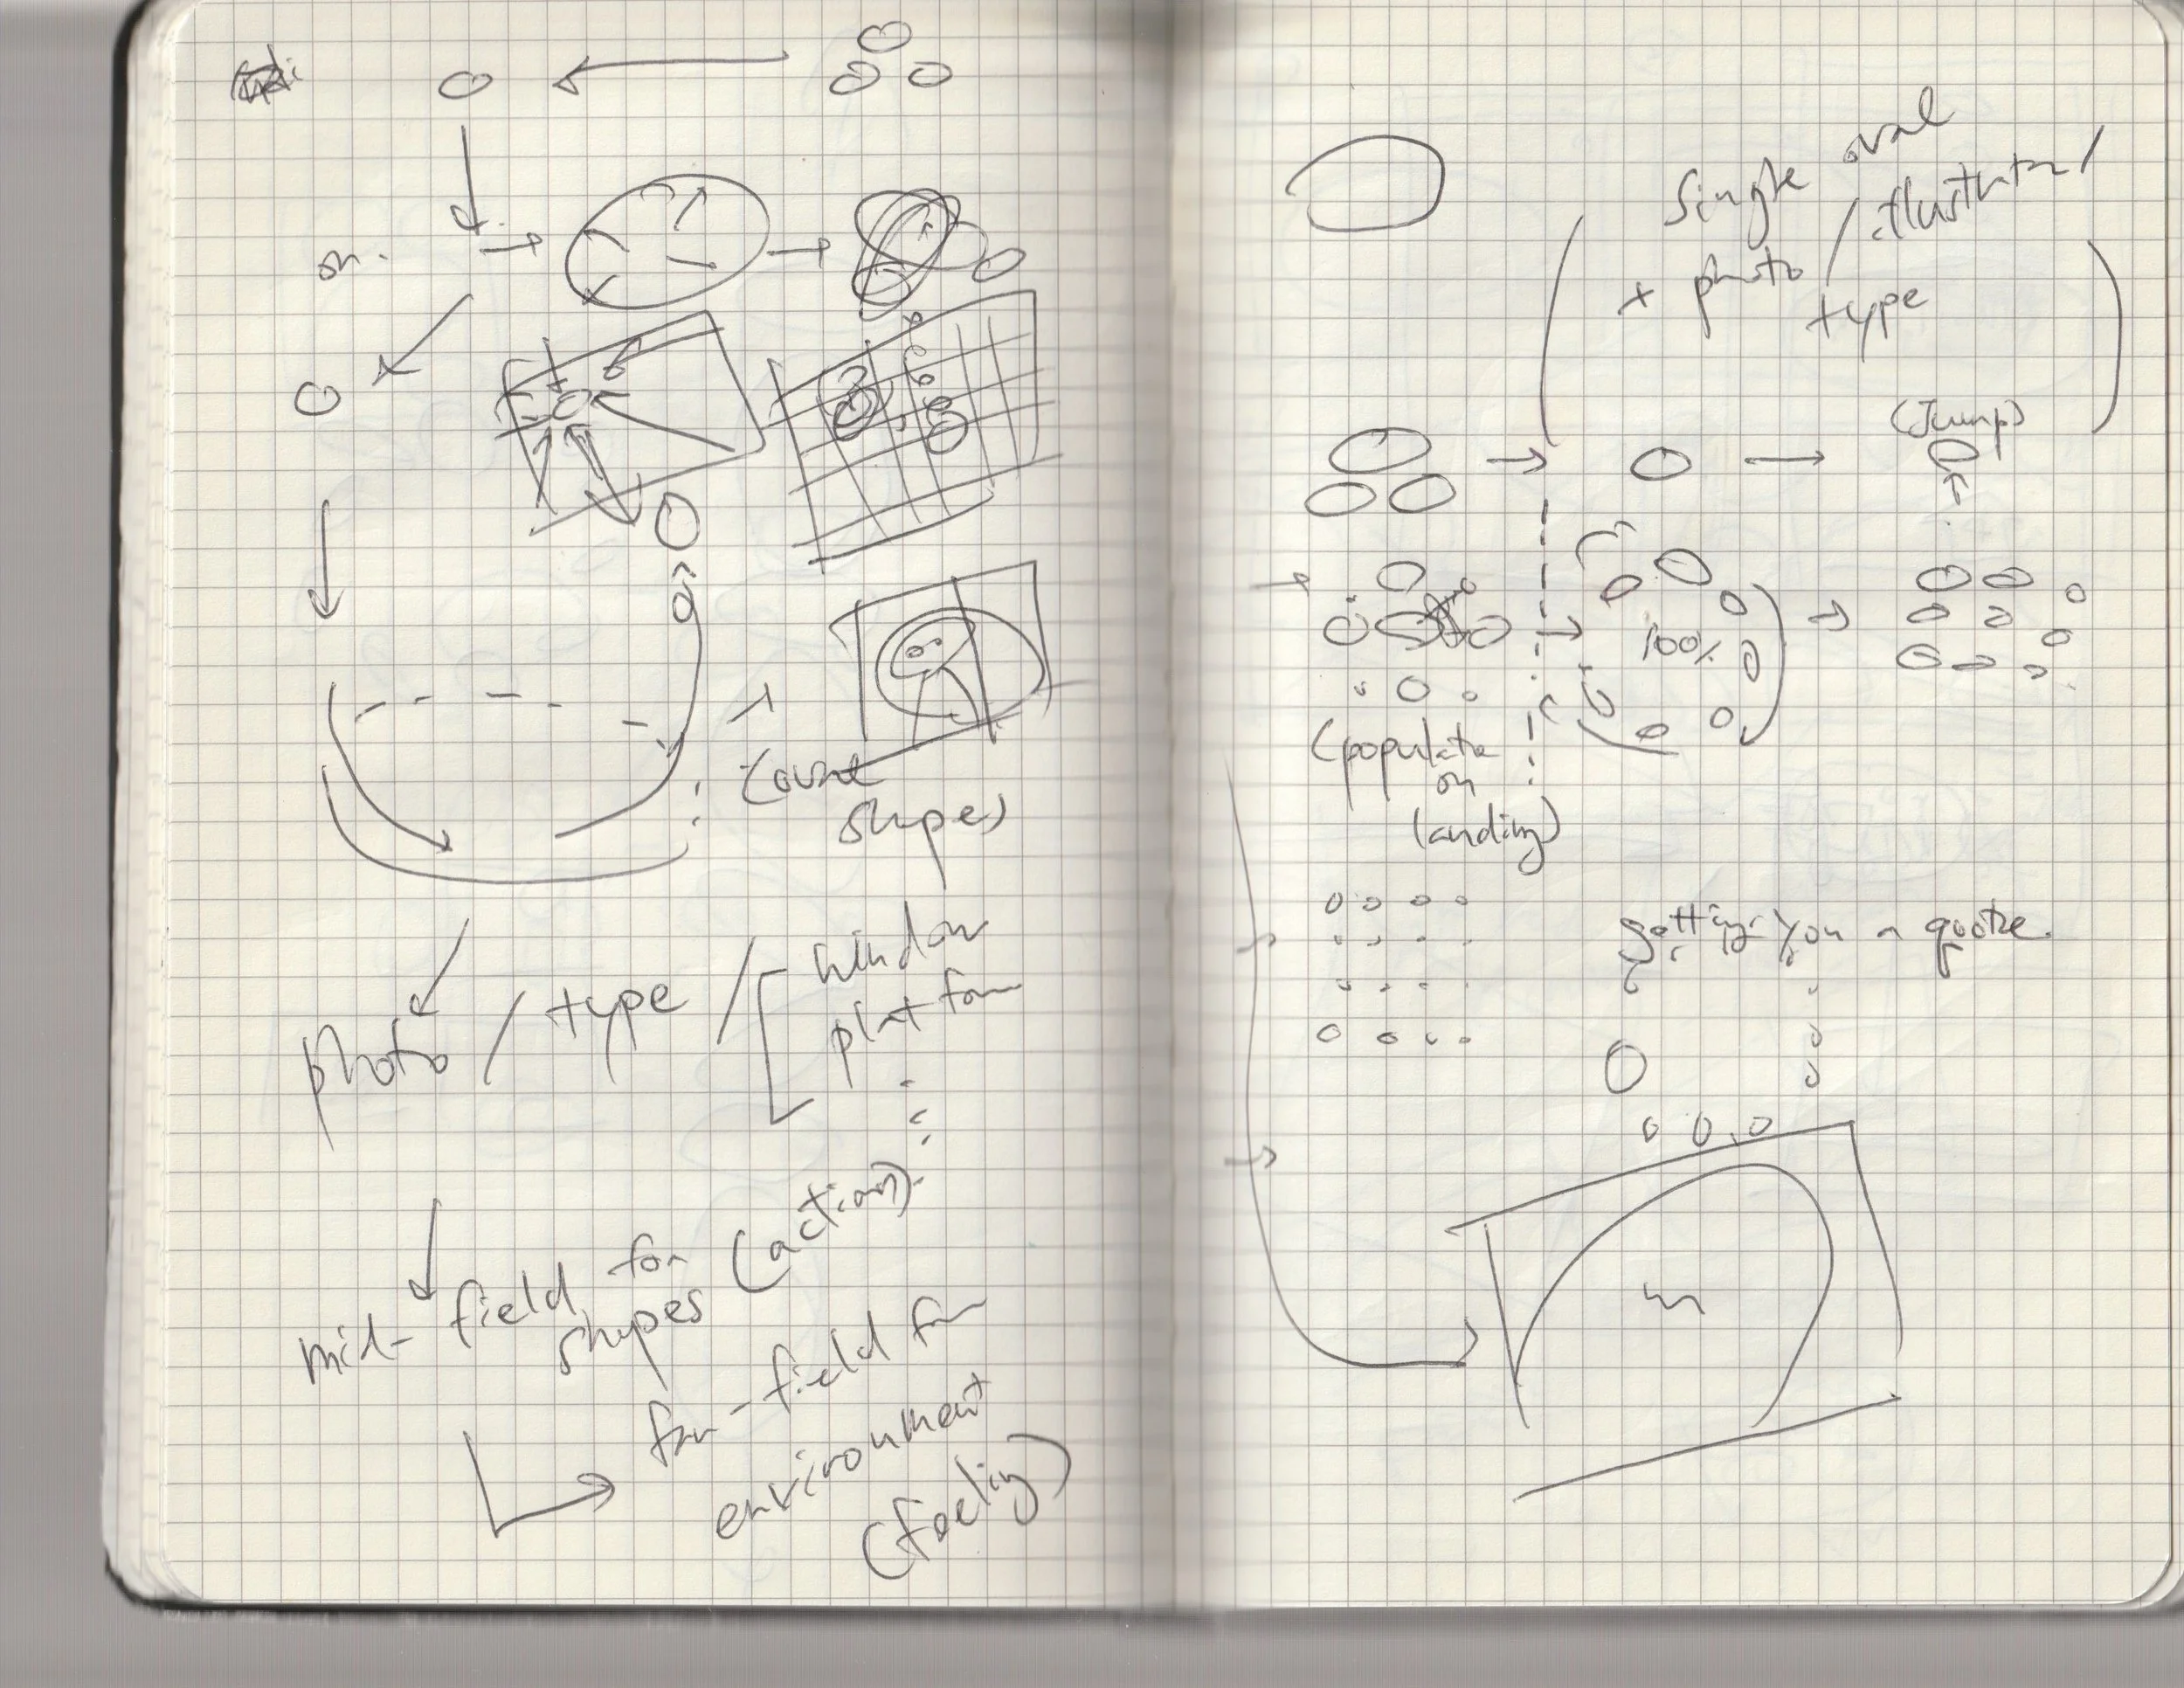 or.
(count
shapes)
photo / type / [ window
platform
mid-field for
shapes (action).
far-field for
environment
(feeling)
Single oval
+ photo / illustration /
type
(Jump)
100%
(populate
on
landing)
getting you a quote.